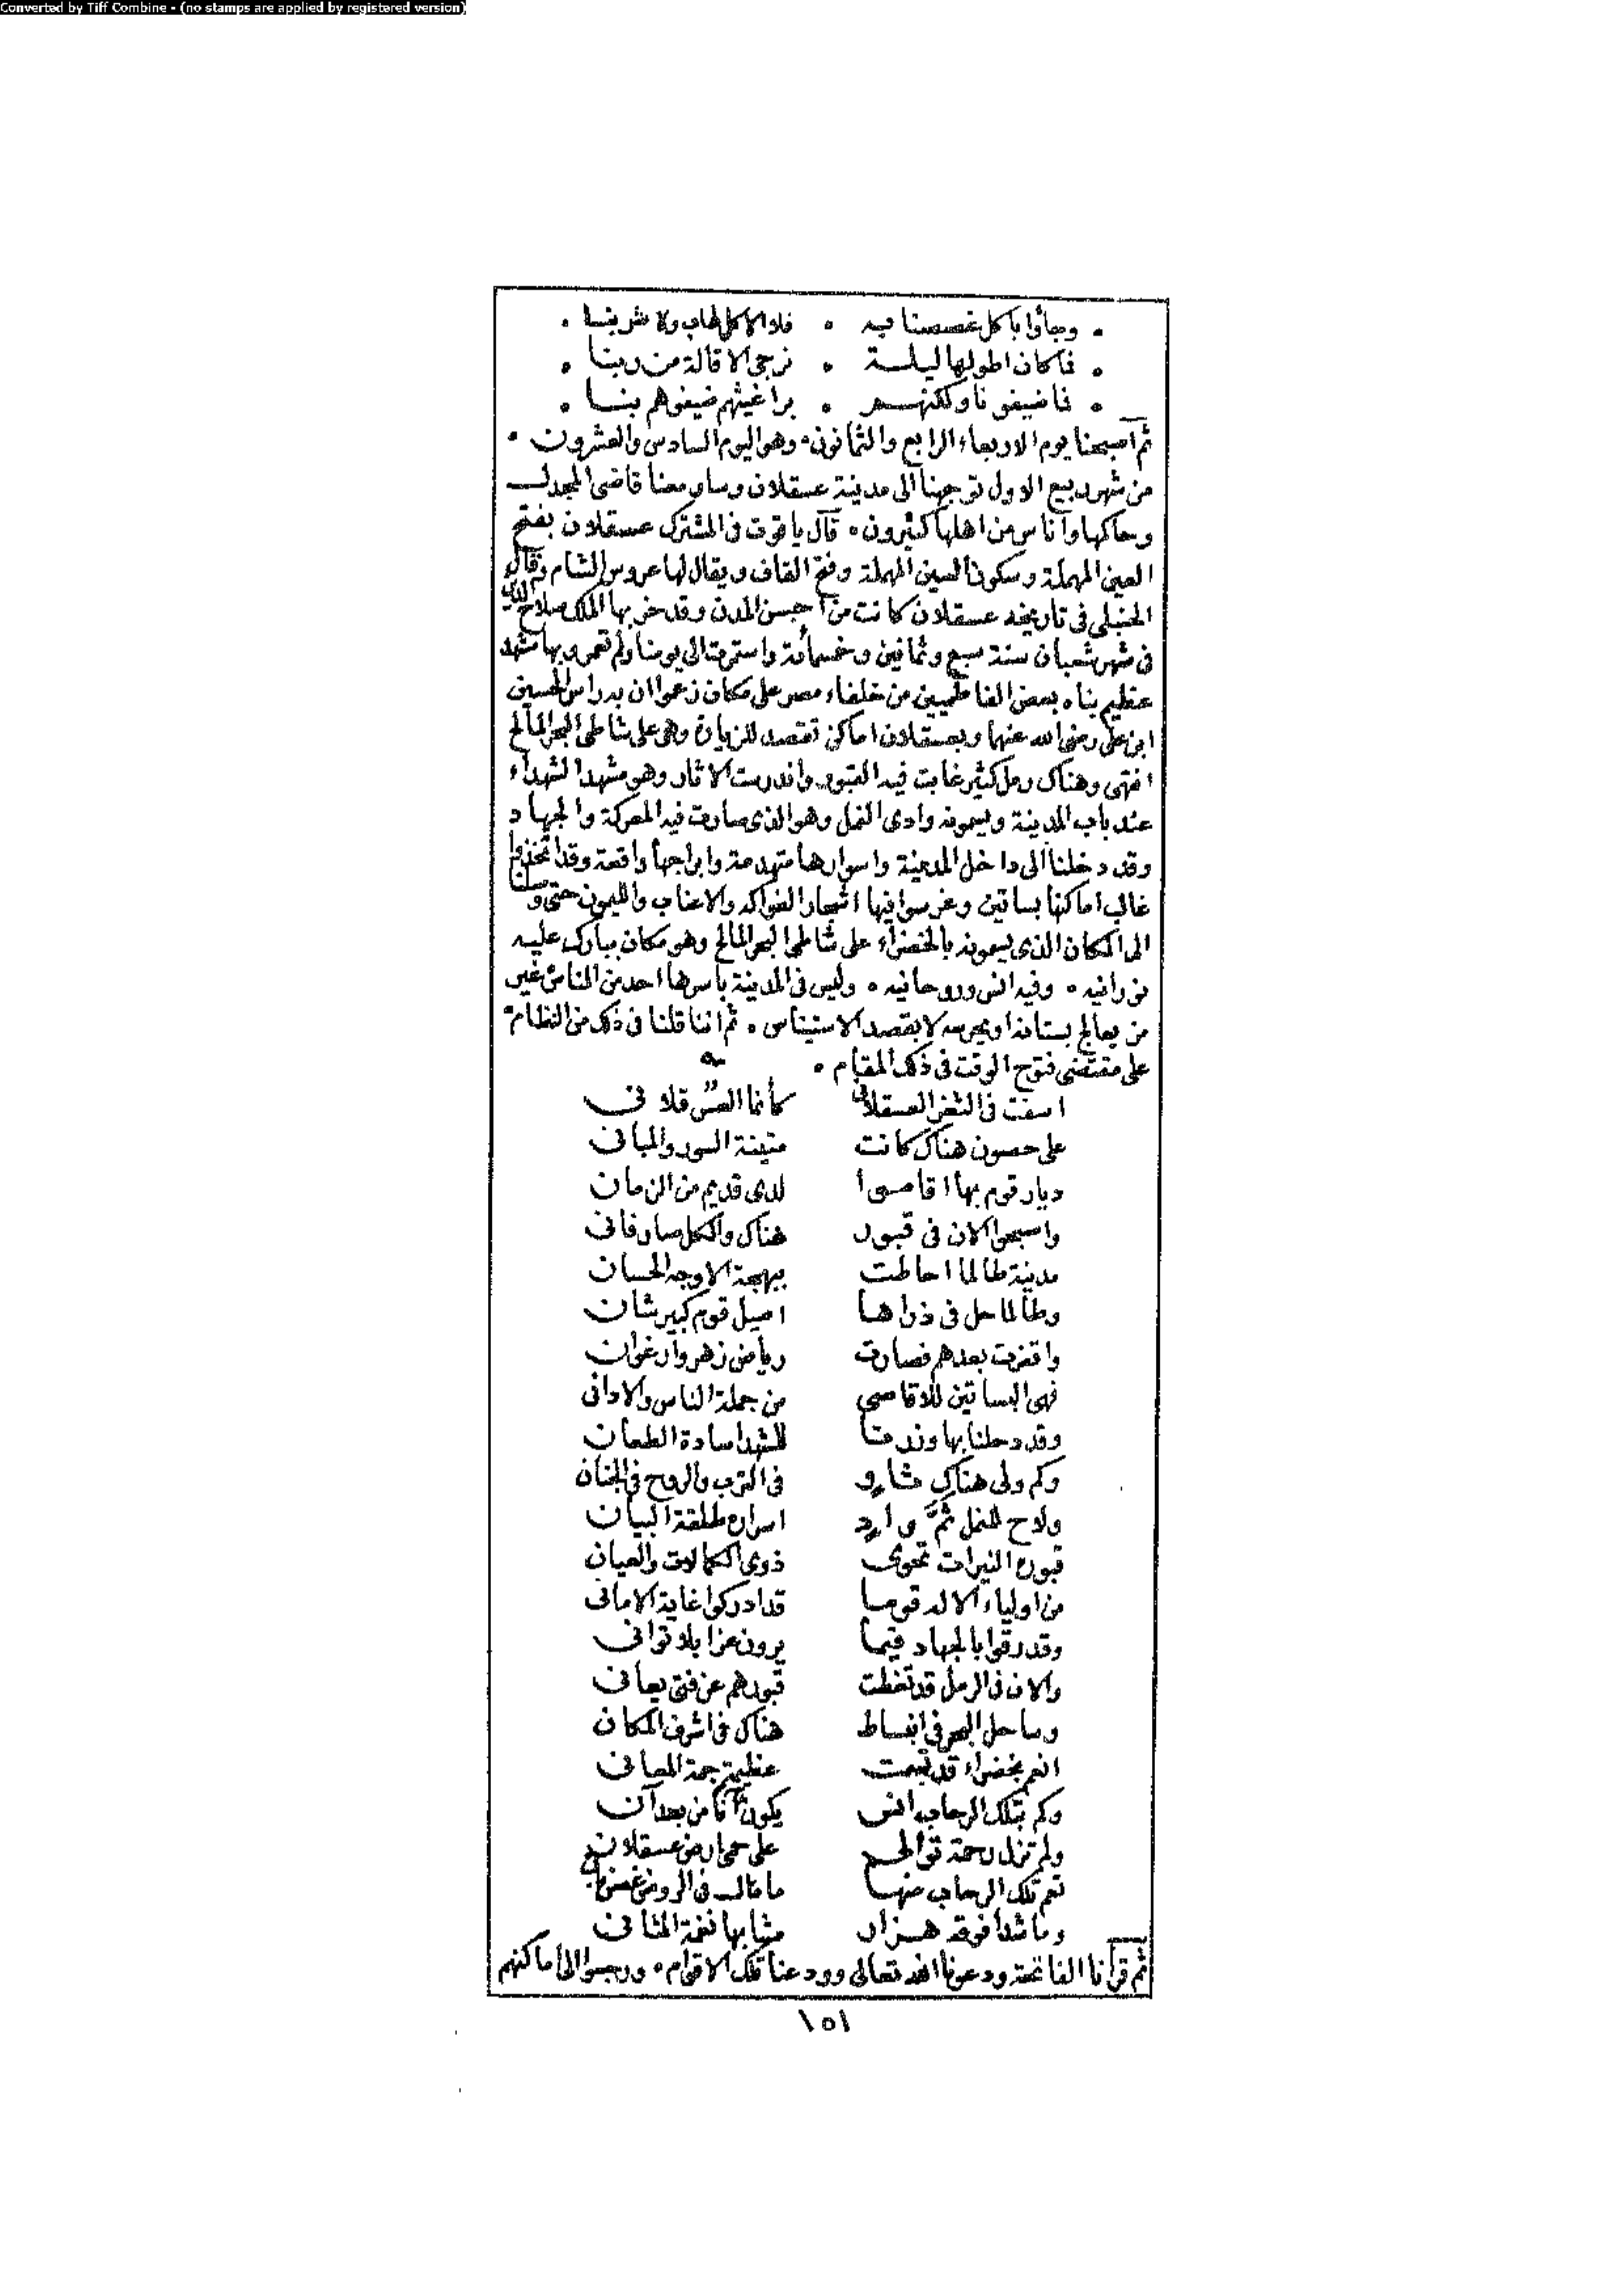 Converted by Tiff Combine - (no stamps are applied by registered version)
• وجاؤا باكل غصصنا به • فلا الاكل طاب ولا شربنا •
• فما كان اطولها ليلــة • نرجى الاقالة من ربنا •
• فما ضيفونا ولكنهــم • براغيثهم ضيفوهم بنــا •
ثم اصبحنا يوم الاربعاء الرابع والثمانون • وهو اليوم السادس والعشرون •
من شهر ربيع الاول توجهنا الى مدينة عسقلان وسار معنا قاضى المجدل
وحاكمها واناس من اهلها كثيرون • قال ياقوت فى المشترك عسقلان بفتح
العين المهملة وسكون السين المهملة وفتح القاف ويقال لها عروس الشام وقال
الحنبلى فى تاريخه عسقلان كانت من احسن المدن وقد خربها الملك صلاح الدين
فى شهر شعبان سنة سبع وثمانين وخمسمائة واستمرت الى يومنا ولم تعمر وبها مشهد
عظيم بناه بعض الفاطميين من خلفاء مصر على مكان زعموا ان به راس الحسين
ابن على رضى الله عنهما وبعسقلان اماكن تقصد للزيارة وهى على شاطى البحر المالح
انتهى وهناك رمل كثير غابت فيه القبور واندرست الاثار وهو مشهد الشهداء
عند باب المدينة ويسمونه وادى النمل وهو الذى صارت فيه المعركة والجهاد
وقد دخلنا الى داخل المدينة واسوارها متهدمة وابراجها واقعة وقد اتخذوا
غالب اماكنها بساتين وغرسوا فيها اشجار الفواكه والاعناب والليمون حتى وصلنا
الى المكان الذى يسمونه بالخضراء على شاطى البحر المالح وهو مكان مبارك عليه
نورانيه • وفيه انس وروحانيه • وليس فى المدينة باسرها احد من الناس غير
من يعالج بستانه او يحرسه لا بقصد الاستيناس • ثم اننا قلنا فى ذلك من النظام •
على مقتضى فتوح الوقت فى ذلك المقام •
اسفت فى الثغر العسقلانى كأنما العش قلانى
على حصون هناك كانت متينة السور والمبانى
ديار قوم بها اقاموا لدى قديم من الزمان
واصبحوا الان فى قبور هناك والكل صار فانى
مدينة طالما احاطت ببهجة الاوجه الحسان
وطالما حل فى ذراها اصيل قوم كبير شان
واقفرت بعدهم فصارت رياض زهر وارغوان
فهى البساتين للاقاصى من جملة الناس والادانى
وقد دخلنا بها وزرنا للشهدا سادة الطعان
وكم ولى هناك ثاوٍ فى الترب والروح فى الجنان
ولاح للنمل ثمَّ وادٍ اسراره طلقة البيان
قبوره النيرات تحوى ذوى الكمالات والعيان
من اولياء الاله قوما قد ادركوا غاية الامانى
وقد رقوا بالجهاد فيما يرون عزا بلا توانى
والان فى الرمل قد تغطت قبورهم عن فتى يعانى
وساحل البحر فى انبساط هناك فى اشرف المكان
انعم بخضراء قد تسمت عظيمة جمة المعانى
وكم بتلك الرحاب انس يكون آنا من بعد آن
ولم تزل رحمة توالى على حمى ارض عسقلان
تعم تلك الرحاب منها ما مال فى الروض غصن بان
وما شدا فوقه هزار مشابها نغمة المثانى
ثم قرأنا الفاتحة ودعونا الله تعالى وودعنا تلك الاقوام • ورجعوا الى اماكنهم
١٥١